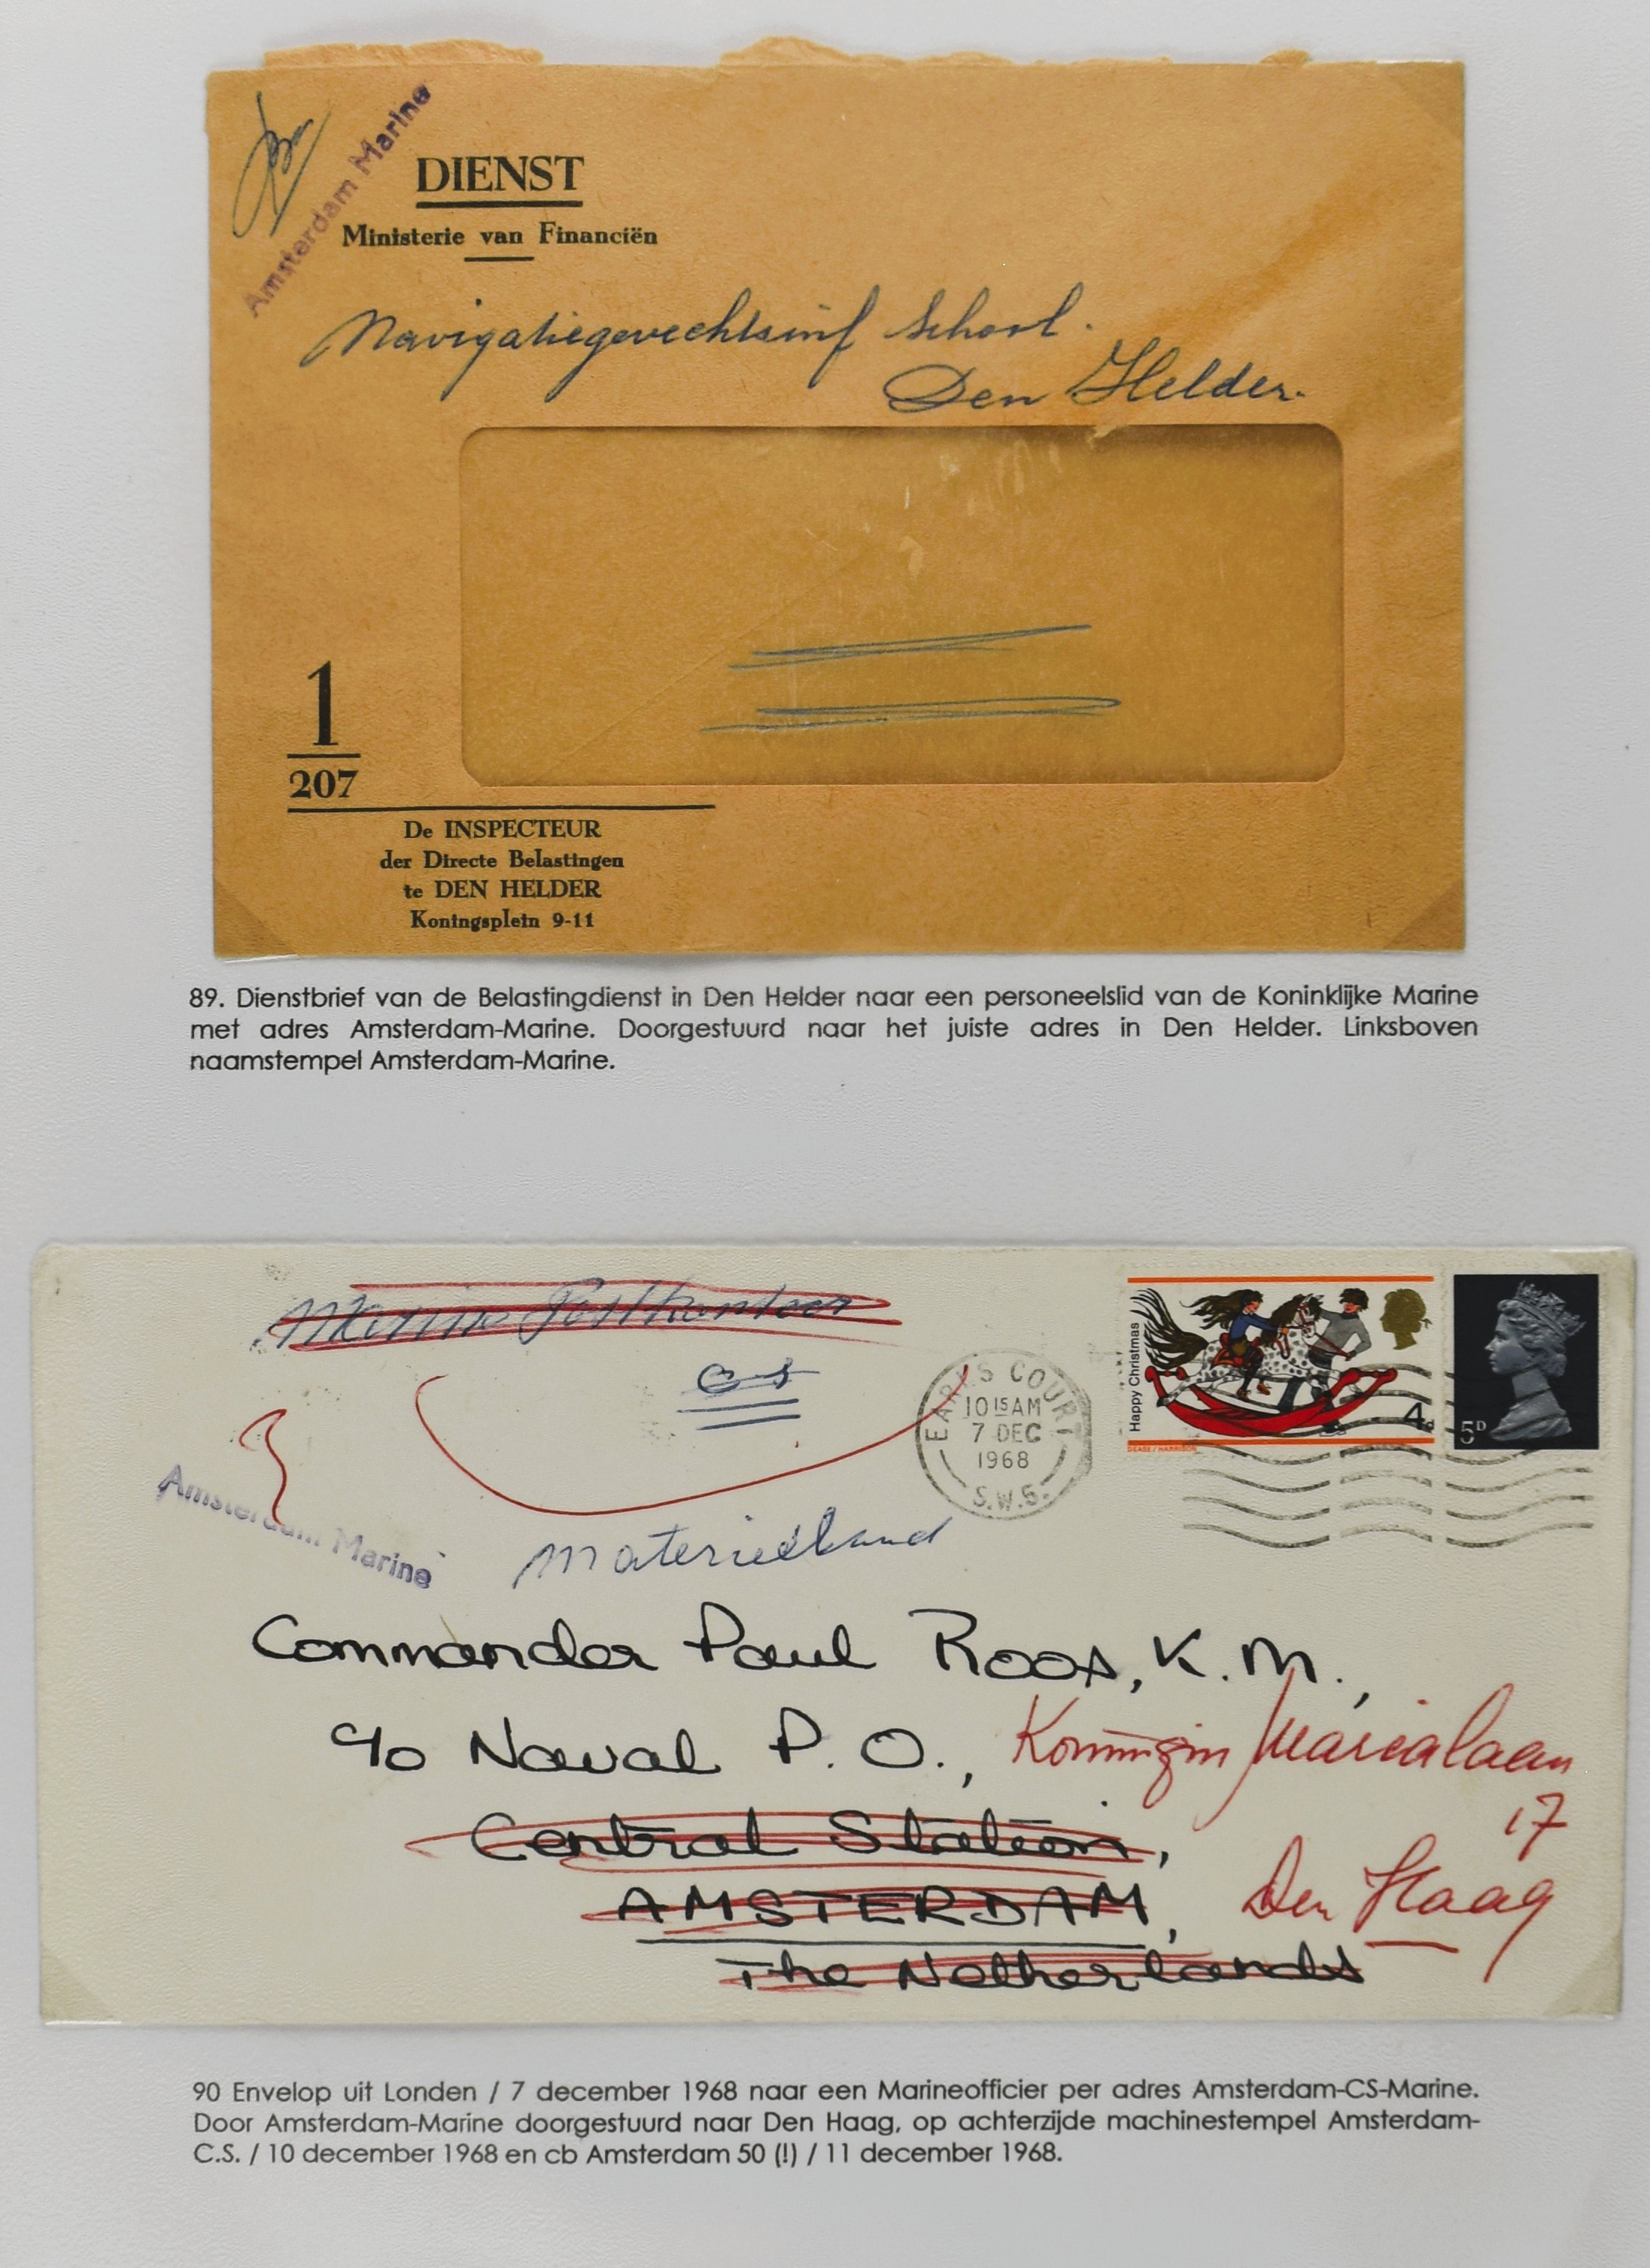 Amsterdam Marine
DIENST
Ministerie van Financiën
Navigatiegevechtsinf School.
Den Helder.
1
207
De INSPECTEUR
der Directe Belastingen
te DEN HELDER
Koningsplein 9-11
89. Dienstbrief van de Belastingdienst in Den Helder naar een personeelslid van de Koninklijke Marine
met adres Amsterdam-Marine. Doorgestuurd naar het juiste adres in Den Helder. Linksboven
naamstempel Amsterdam-Marine.
Marine Postkantoor
CS
EARLS COURT
10 15 AM
7 DEC
1968
S.W.5.
Happy Christmas
4d
DEASE/HARRISON
5D
Amsterdam Marine
Commander Paul Roos, K.M.,
c/o Naval P.O., Koningin Marialaan
17
Central Station,
AMSTERDAM, Den Haag
The Netherlands
90 Envelop uit Londen / 7 december 1968 naar een Marineofficier per adres Amsterdam-CS-Marine.
Door Amsterdam-Marine doorgestuurd naar Den Haag, op achterzijde machinestempel Amsterdam-
C.S. / 10 december 1968 en cb Amsterdam 50 (!) / 11 december 1968.